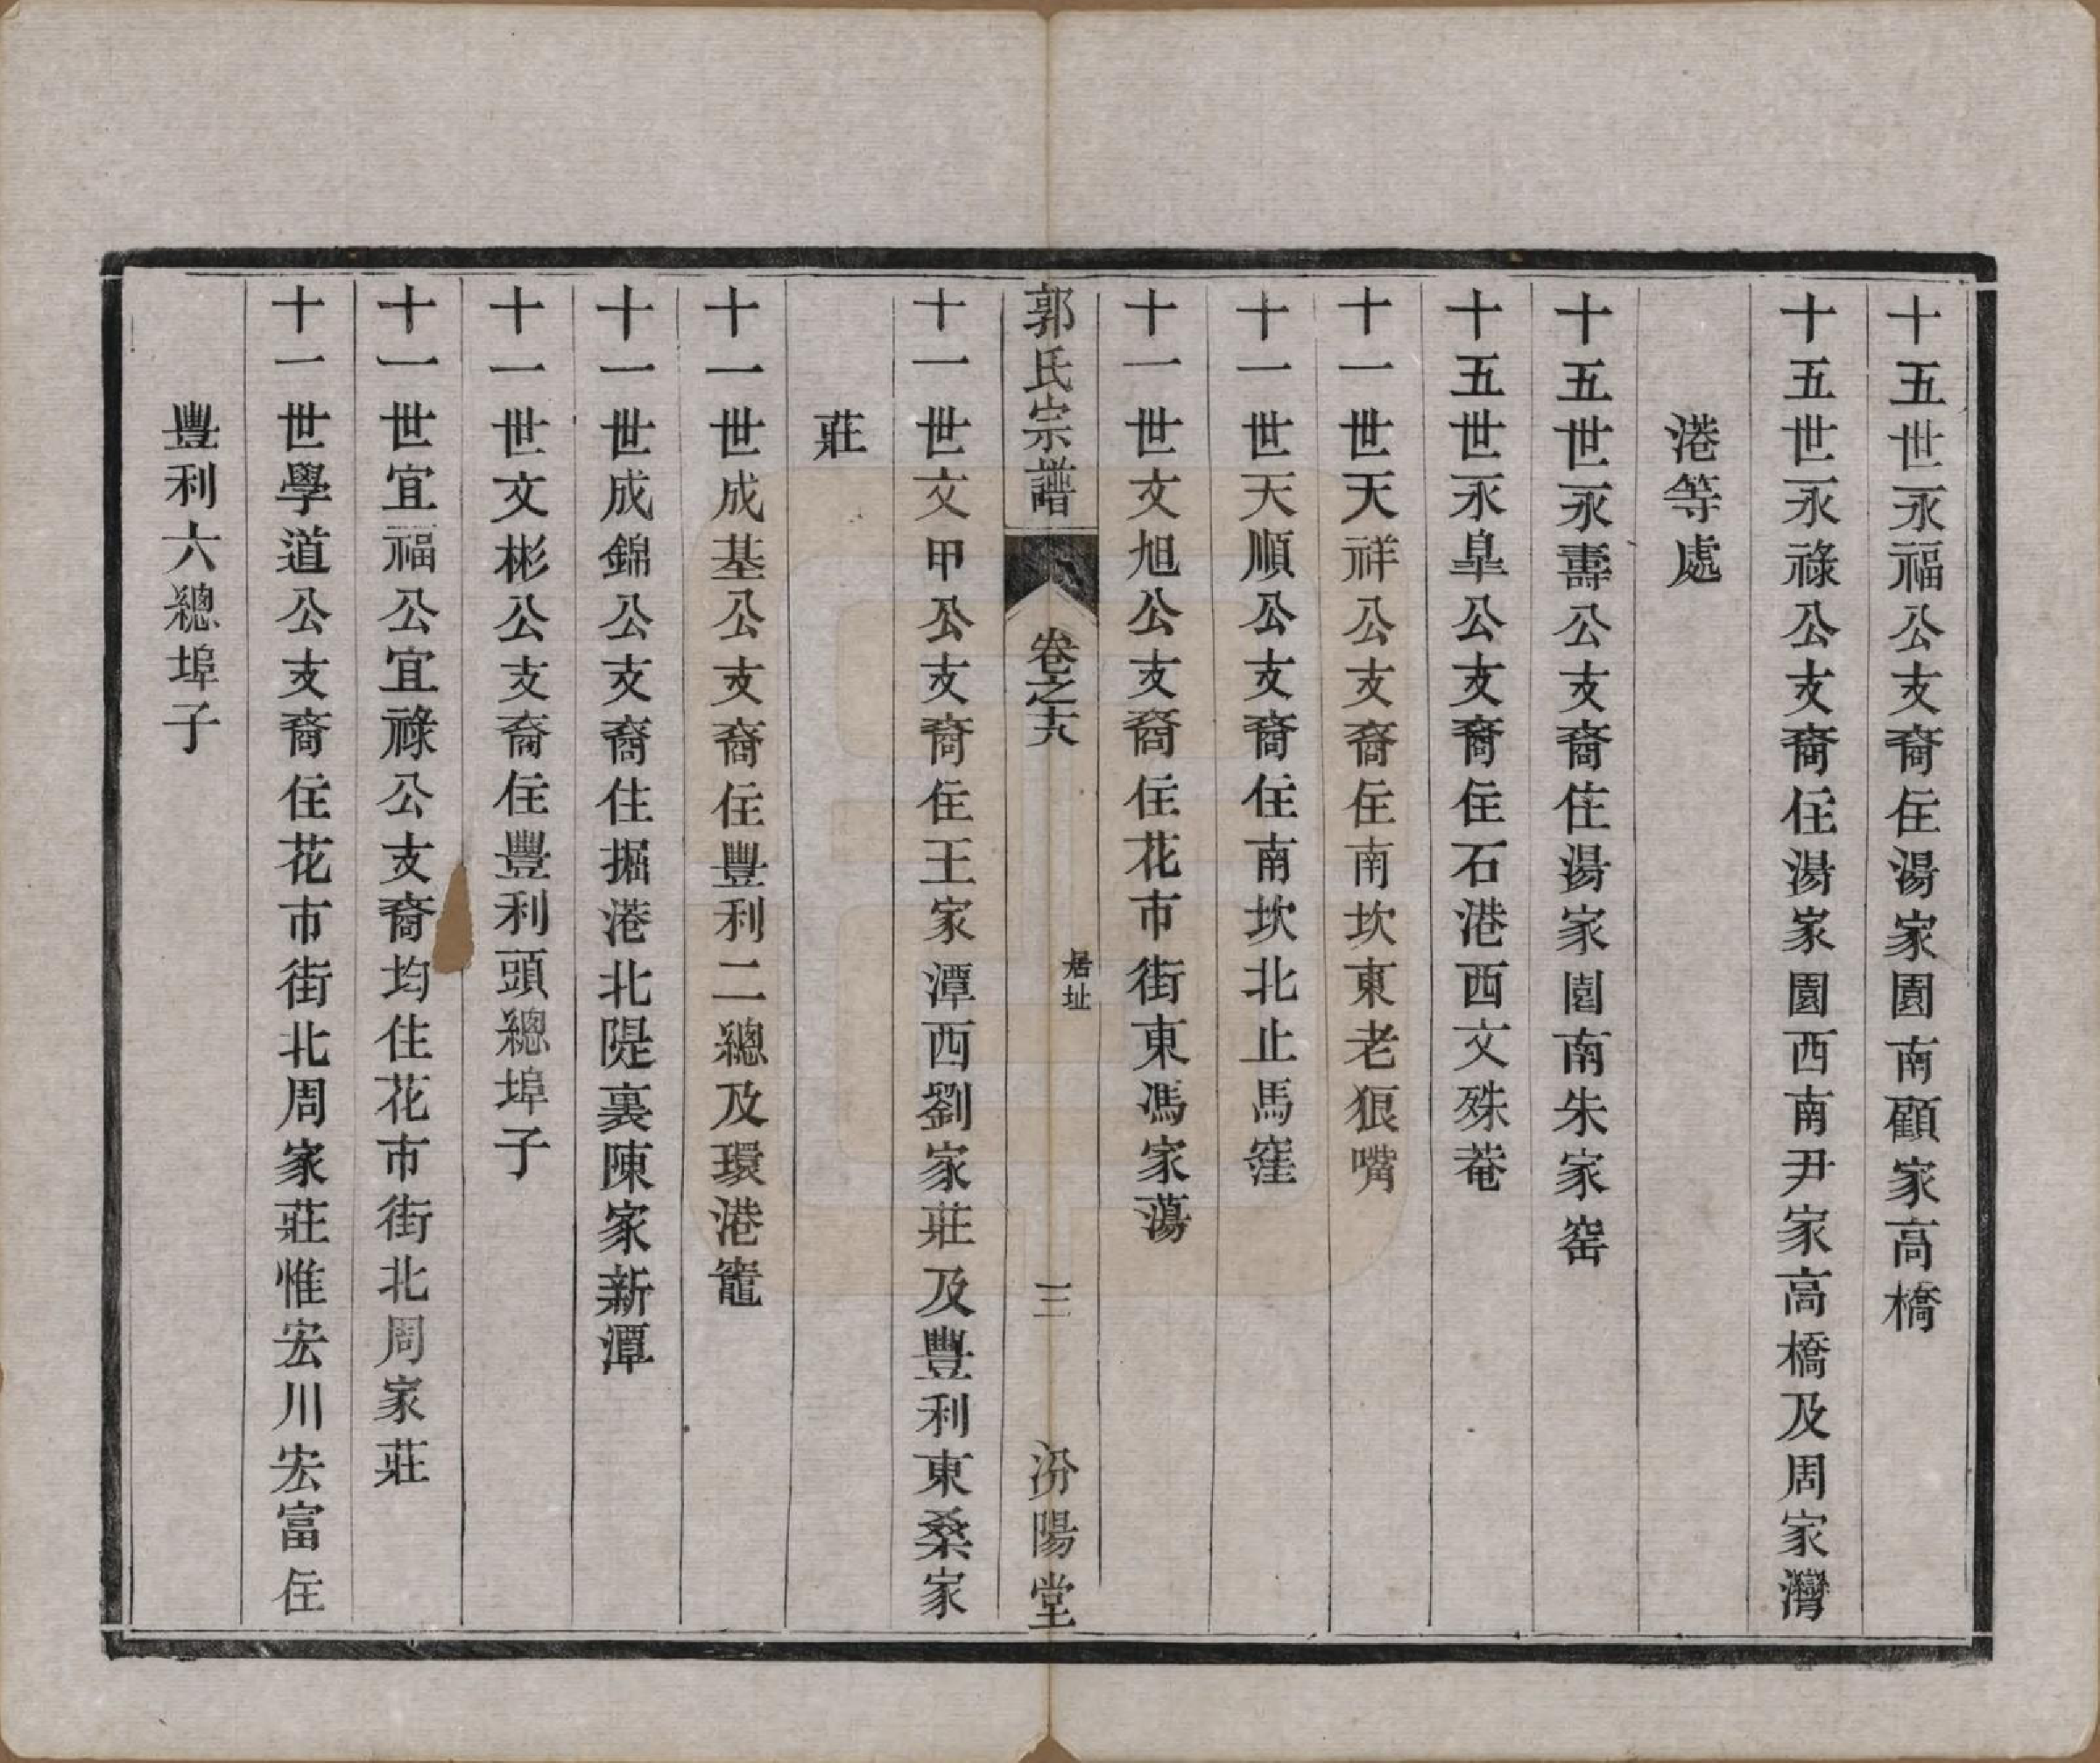 十五世永福公支裔住湯家園南顧家高橋
十五世永祿公支裔住湯家園西南尹家高橋及周家灣
港等處
十五世永壽公支裔住湯家園南朱家窑
十五世永皐公支裔住石港西文殊菴
十一世天祥公支裔住南坎東老狼嘴
十一世天順公支裔住南坎北止馬窪
十一世文旭公支裔住花市街東馮家蕩
郭氏宗譜
卷之十六
居址
三
汾陽堂
十一世文甲公支裔住王家潭西劉家莊及豐利東桑家
莊
十一世成基公支裔住豐利二總及環港竈
十一世成錦公支裔住掘港北隄裏陳家新潭
十一世文彬公支裔住豐利頭總埠子
十一世宜福公宜祿公支裔均住花市街北周家莊
十一世學道公支裔住花市街北周家莊惟宏川宏富住
豐利六總埠子